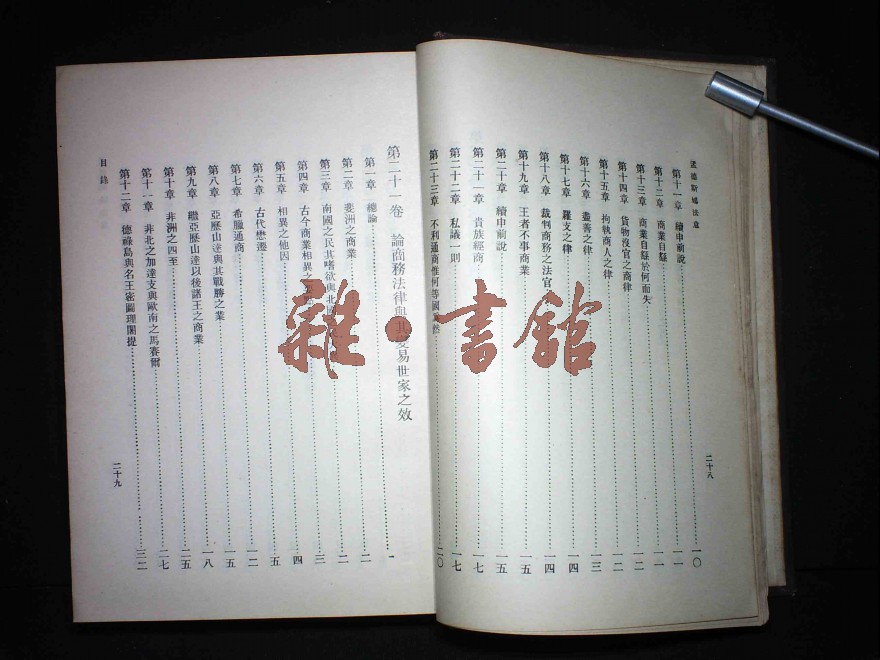 孟德斯鳩法意
第十一章 續申前說 一〇
第十二章 商業自繇 一一
第十三章 商業自繇於何而失 一一
第十四章 貨物沒官之商律 一二
第十五章 拘執商人之律 一二
第十六章 盡善之律 一三
第十七章 羅支之律 一四
第十八章 裁判商務之法官 一四
第十九章 王者不事商業 一五
第二十章 續申前說 一五
第二十一章 貴族經商 一七
第二十二章 私議一則 一七
第二十三章 不利通商惟何等國 然 二〇
二十八
第二十一卷 論商務法律與其變易世家之效 一
第一章 總論 二
第二章 斐洲之商業 二
第三章 南國之民其嗜欲與北 三
第四章 古今商業相異之 四
第五章 相異之他因 五
第六章 古代懋遷 一二
第七章 希臘通商 一五
第八章 亞歷山達與其戰勝之業 一八
第九章 繼亞歷山達以後諸王之商業 二五
第十章 非洲之四至 二七
第十一章 非北之加達支與歐南之馬賽爾
第十二章 德祿島與名王密圖理閣提 三二
目錄
二十九
雜·書館